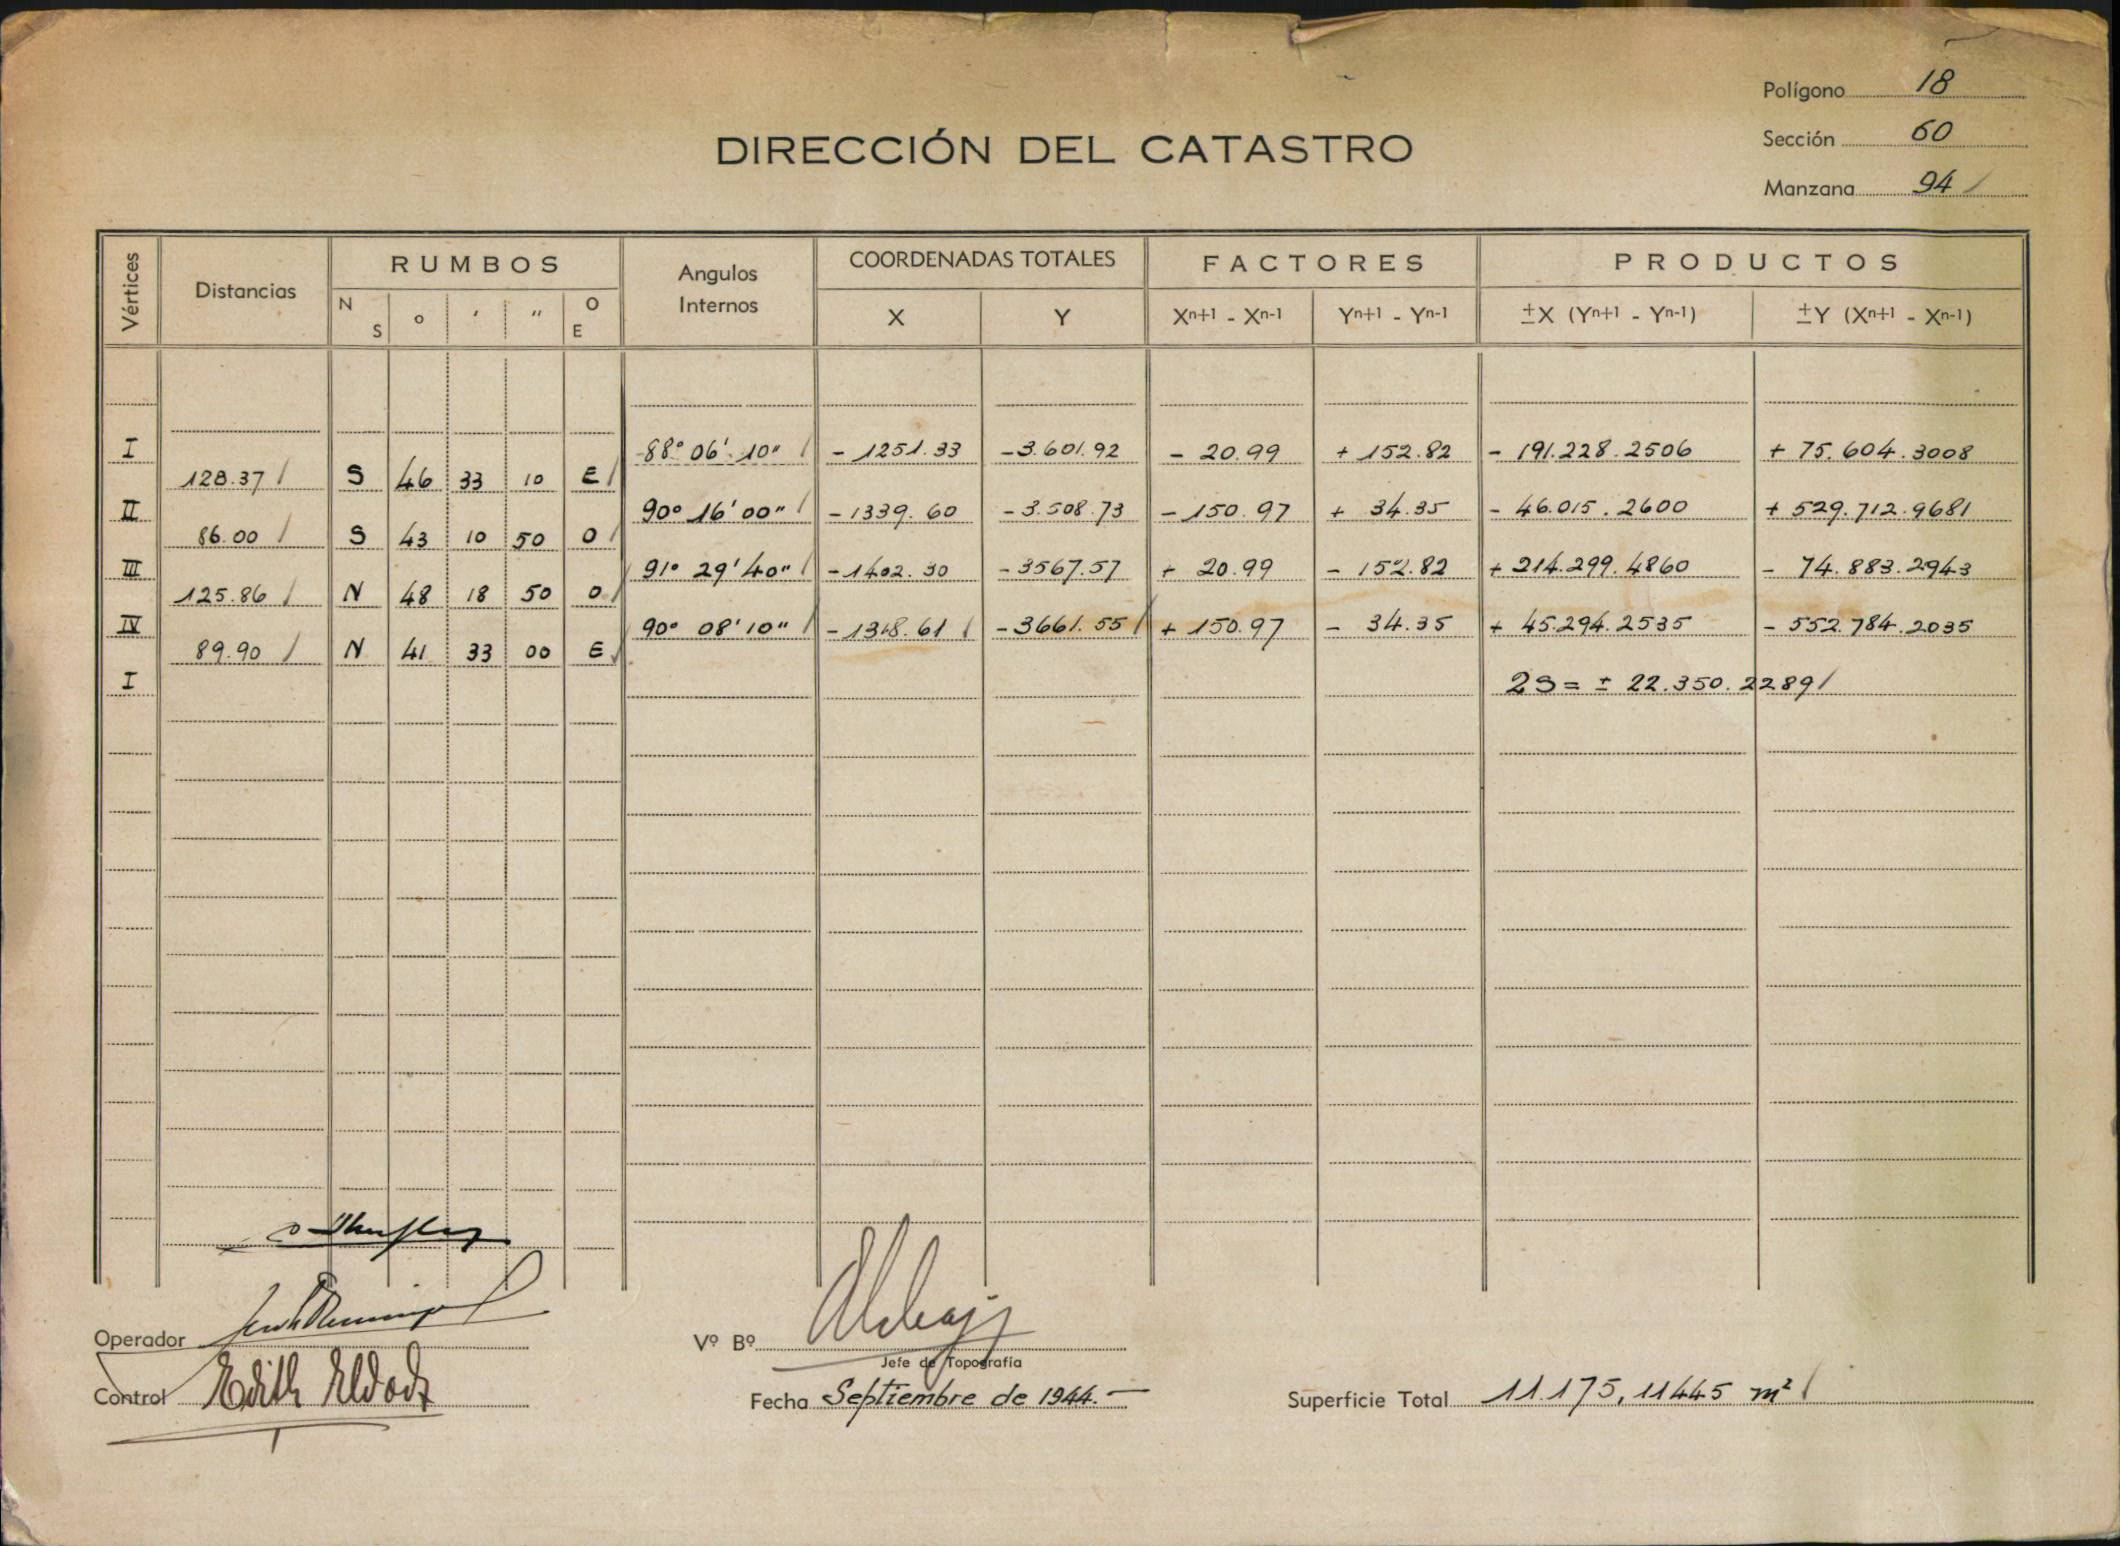 Polígono 18
DIRECCIÓN DEL CATASTRO
Sección 60
Manzana 94
Vértices Distancias RUMBOS Angulos Internos COORDENADAS TOTALES FACTORES PRODUCTOS
N S o ′ ″ O E X Y Xn+1 - Xn-1 Yn+1 - Yn-1 ±X (Yn+1 - Yn-1) ±Y (Xn+1 - Xn-1)
I 88° 06' 10" - 1251.33 -3.601.92 - 20.99 + 152.82 - 191.228.2506 + 75.604.3008
128.37 S 46 33 10 E
II 90° 16' 00" -1339.60 -3.508.73 - 150.97 + 34.35 - 46.015.2600 + 529.712.9681
86.00 S 43 10 50 O
III 91° 29' 40" -1402.30 -3567.57 + 20.99 - 152.82 + 214.299.4860 - 74.883.2943
125.86 N 48 18 50 O
IV 90° 08' 10" -1318.61 -3661.55 + 150.97 - 34.35 + 45.294.2535 - 552.784.2035
89.90 N 41 33 00 E
I 2S = ± 22.350.2289
Operador
Vº Bº
Jefe de Topografía
Control Edith
Fecha Septiembre de 1944.-
Superficie Total 11.175,11445 m²